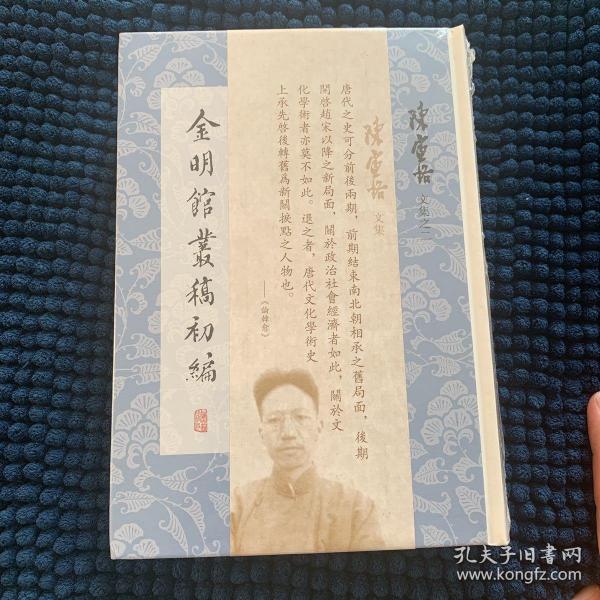 陳寅恪 文集之二
唐代之史可分前後兩期，前期結束南北朝相承之舊局面，後期
開啓趙宋以降之新局面，關於政治社會經濟者如此，關於文
化學術者亦莫不如此。退之者，唐代文化學術史
上承先啓後轉舊爲新關捩點之人物也。
——《論韓愈》
陳寅恪 文集
金明館叢稿初編
孔夫子旧書网
www.kongfz.com